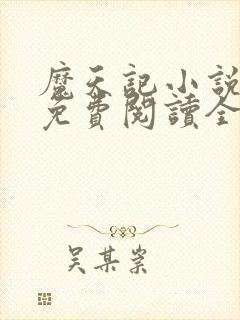 魔天記小說
免費閱讀全
吴某某